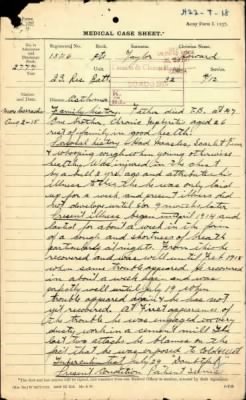 A22-T-18
MEDICAL CASE SHEET.*
Army Form I. 1237.
Regimental No.
Rank
Surname
Christian Name
1506
Pte
Taylor
Edward
Unit
Age
Service
23 Res Batt
32
9/12
Disease
Asthma
Aug 2-18
Family history. Father died T.B. at 47
One brother, chronic nephritis aged 26
rest of family in good health.
Personal history. Had Measles,
& whooping cough when young otherwise
healthy. Was injured in the chest
by a bull 3 yrs ago and attributes his
illness to this, tho he was only laid
up for a week, and present illness did
not develop until 20 months later.
Present illness began in April 1917 and
lasted for about a week in the form
of a cough and shortness of breath
particularly at nights. From this he
recovered and was well until Feb 1918
when same trouble appeared, he recovered
in about a week, and was
perfectly well until July 19 when
trouble appeared again & he has not
yet recovered. At first appearance of
the trouble he was engaged in very
dusty work in a cement mill. The
last two attacks he blames on the
fact that he was exposed to cold & wet
Present Condition Patient